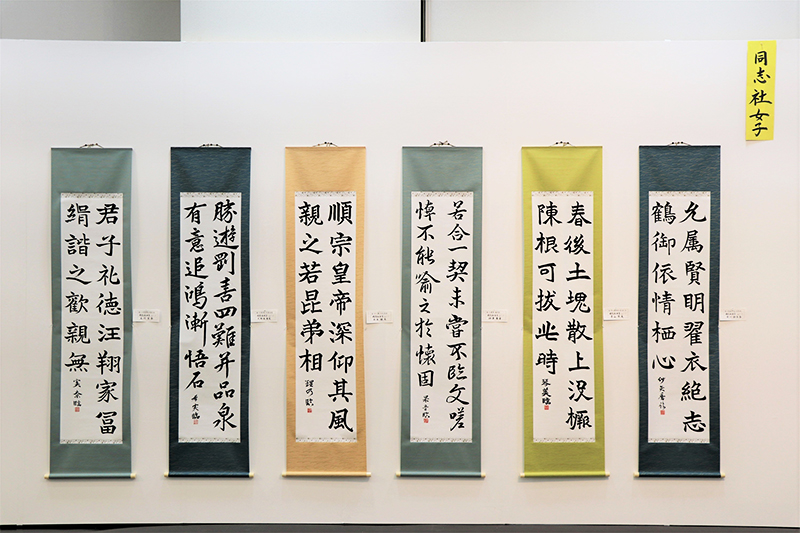 同志社女子
允属賢明翟衣絶志
鶴御依情栖心
春後土塊散上没橛
陳根可拔此時
琴美臨
若合一契未嘗不臨文嗟
悼不能喩之於懐固
順宗皇帝深仰其風
親之若昆弟相
勝遊劉善四難并品泉
有意追鴻漸悟石
君子礼徳汪翔家冨
絹諧之歡親無